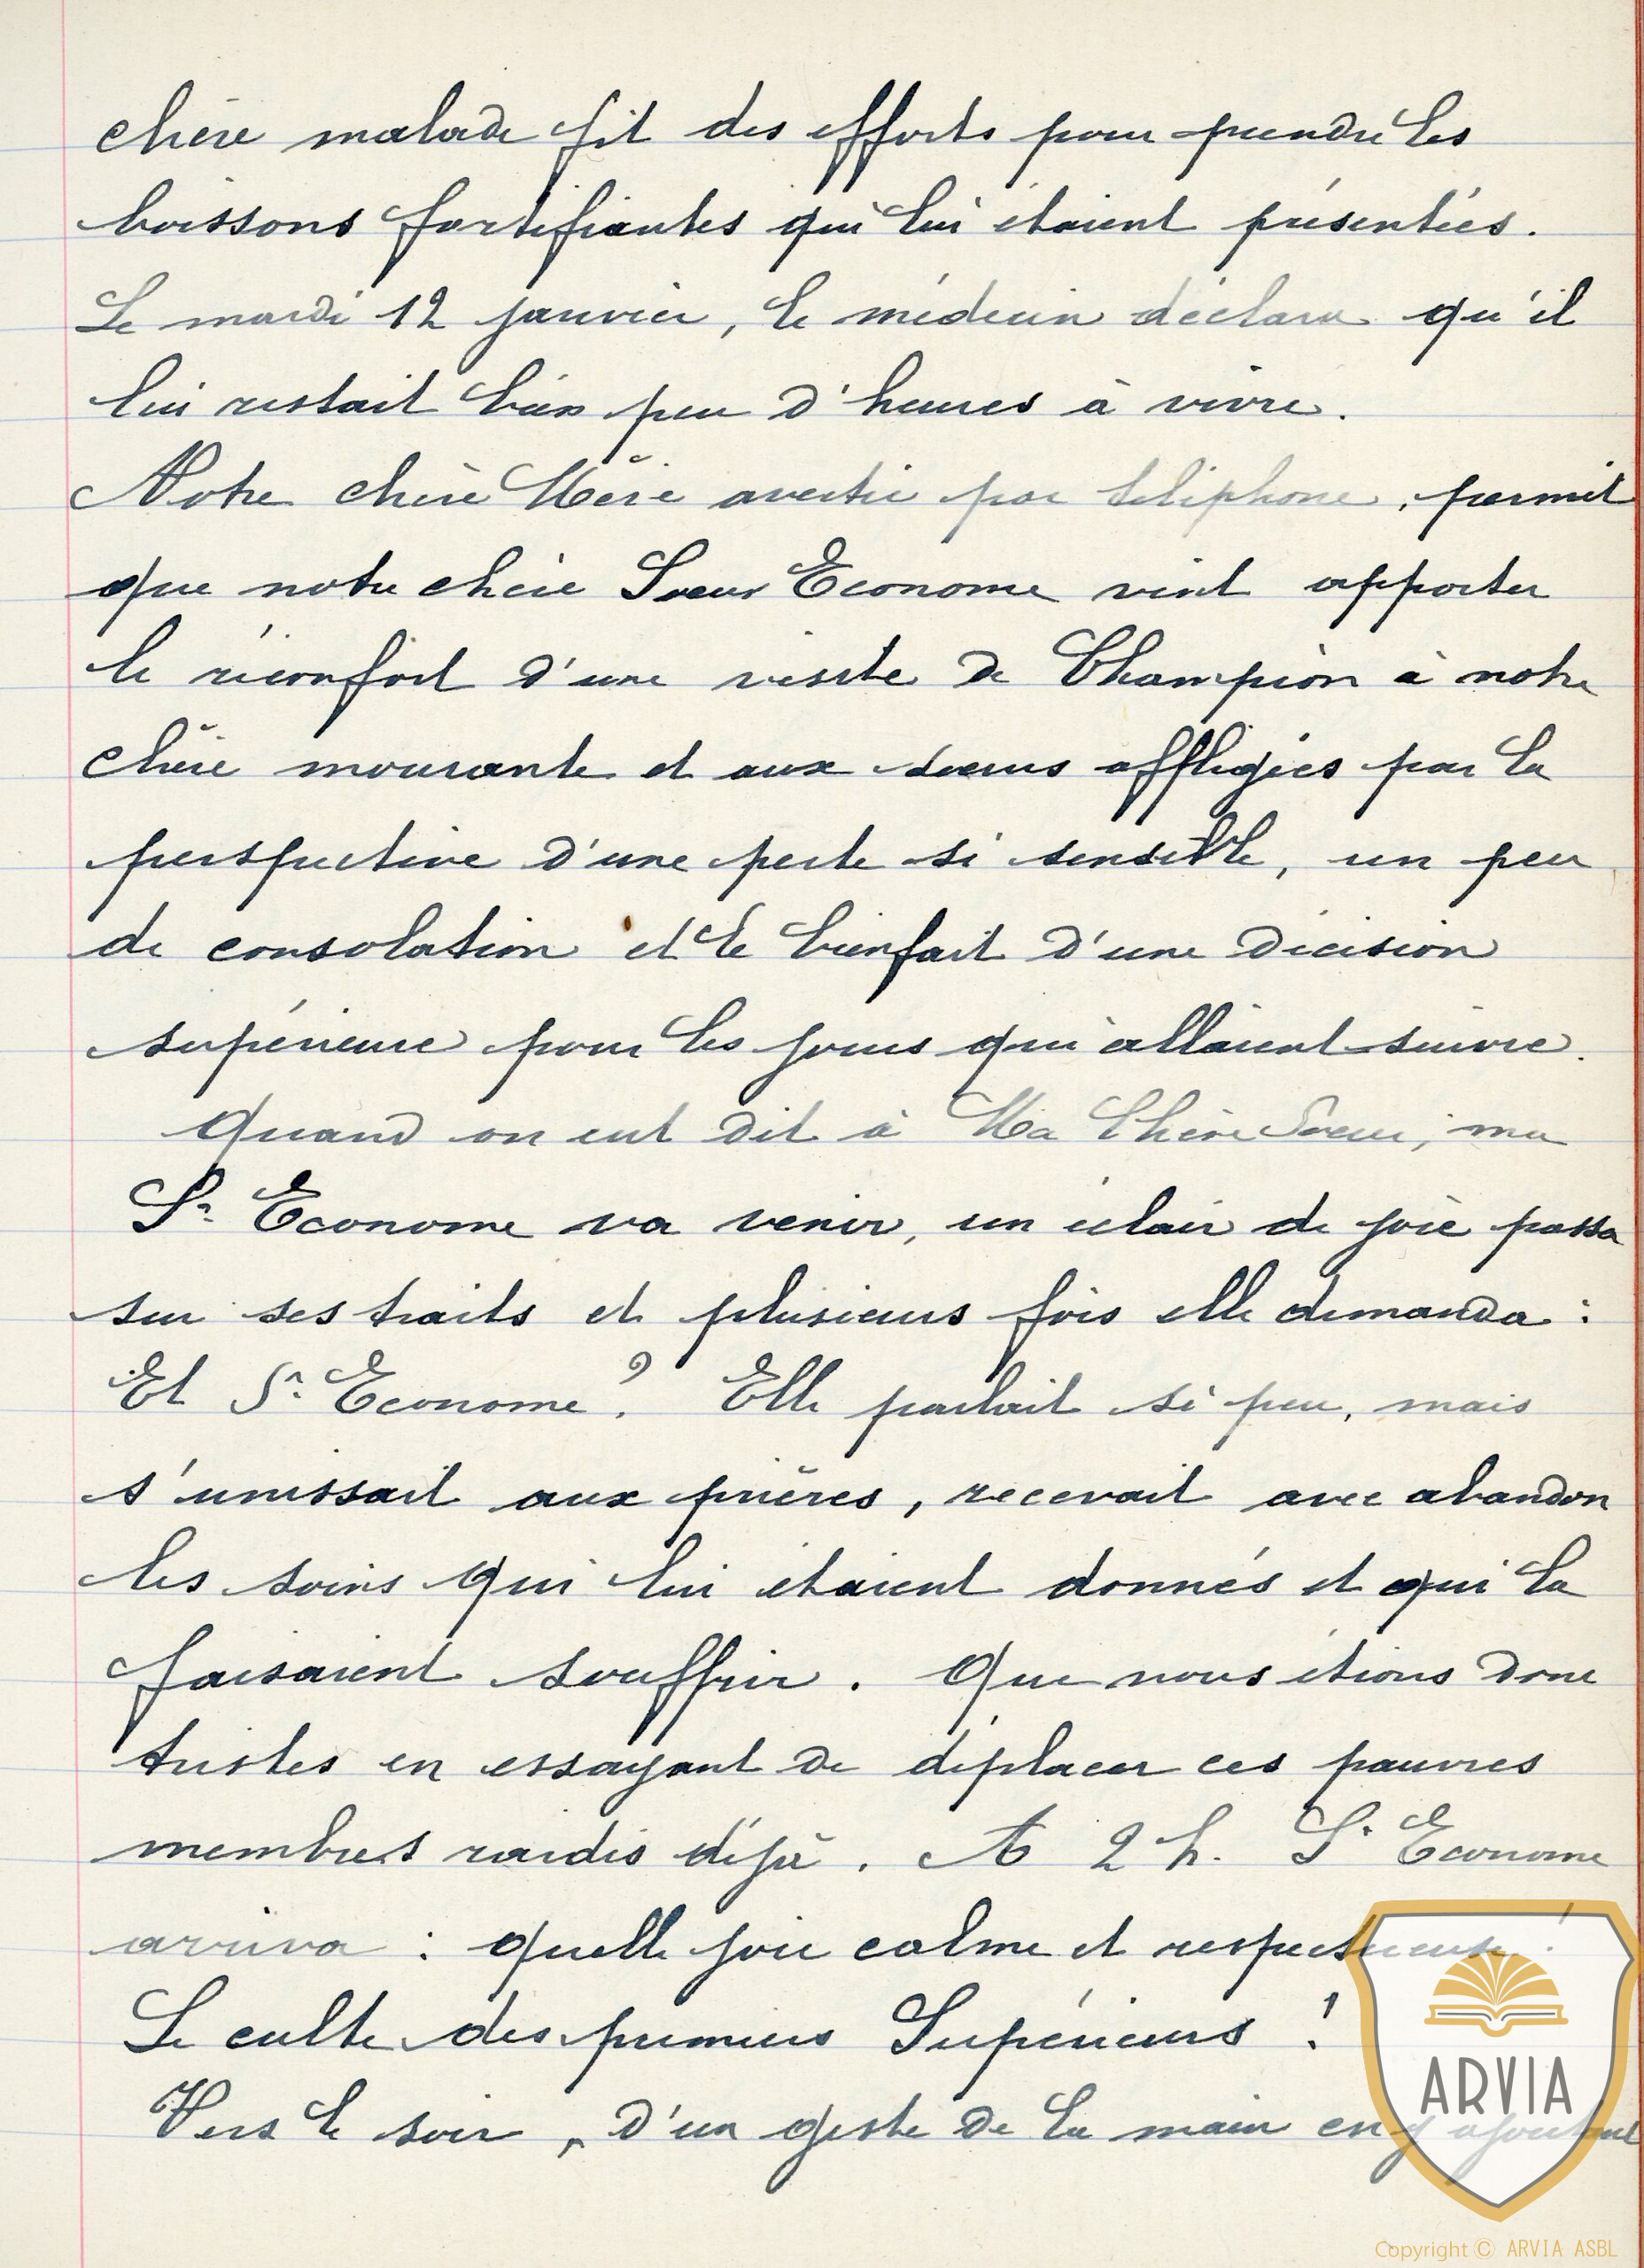 chère malade fit des efforts pour prendre les
boissons fortifiantes qui lui étaient présentées.
Le mardi 12 janvier, le médecin déclara qu'il
lui restait bien peu d'heures à vivre.
Notre chère Mère avertie par téléphone, permit
que notre chère Soeur Econome vint apporter
le réconfort d'une visite de Champion à notre
chère mourante et aux soeurs affligées par la
perspective d'une perte si sensible, un peu
de consolation et le bienfait d'une décision
supérieure pour les jours qui allaient suivre.
Quand on eut dit à Ma Chère Soeur, ma
Sr Econome va venir, un éclair de joie passa
sur ses traits et plusieurs fois elle demanda :
Et Sr Econome ? Elle parlait si peu, mais
s'unissait aux prières, recevait avec abandon
les soins qui lui étaient donnés et qui la
faisaient souffrir. Que nous étions donc
tristes en essayant de déplacer ces pauvres
membres raidis déjà. A 2 h. Sr Econome
arriva : quelle joie calme et respectueuse !
Le culte des premiers Supérieurs !
Vers le soir, d'un geste de la main en y ajoutant
ARVIA
Copyright © ARVIA ASBL